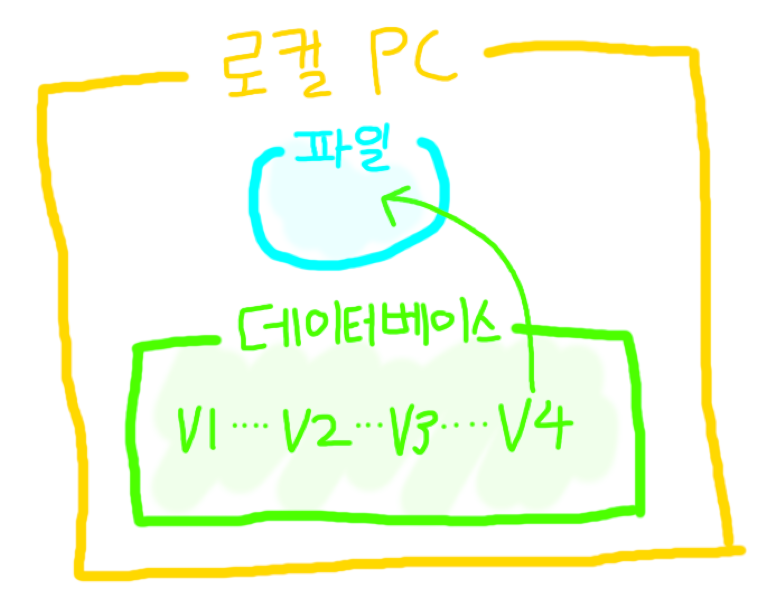 로컬 PC
파일
데이터베이스
V1 ···· V2 ··· V3 ···· V4